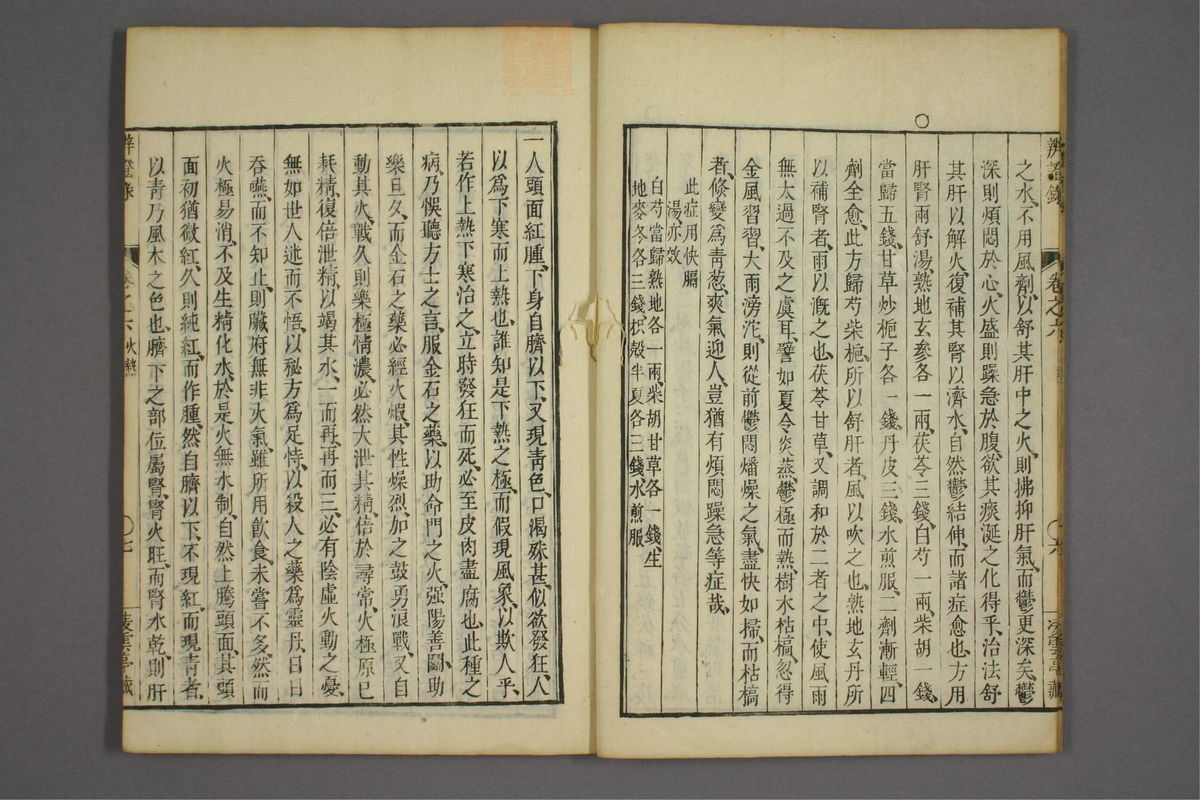 辨證錄
卷之六
之水、不用風劑、以舒其肝中之火、則拂抑肝氣、而鬱更深矣、鬱
深則煩悶於心、火盛則躁急於腹、欲其痰涎之化得乎、治法舒
其肝以解火、復補其腎以濟水、自然鬱結伸、而諸症愈也、方用
肝腎兩舒湯、熟地玄參各一兩、茯苓三錢、白芍一兩、柴胡一錢、
當歸五錢、甘草炒梔子各一錢、丹皮三錢、水煎服、二劑漸輕、四
劑全愈、此方歸芍柴梔、所以舒肝者、風以吹之也、熟地玄丹、所
以補腎者、雨以溉之也、茯苓甘草、又調和於二者之中、使風雨
無太過不及之虞耳、譬如夏令炎蒸、鬱極而熱、樹木枯槁、忽得
金風習習、大雨滂沱、則從前鬱悶燔燥之氣、盡快如掃、而枯槁
者、倐變爲靑葱、爽氣迎人、豈猶有煩悶躁急等症哉、
此症用快膈
湯、亦效
白芍當歸熟地各一兩、柴胡甘草各一錢、生
地麥冬各三錢、枳殼半夏各三錢、水煎服
一人頭面紅腫、下身自臍以下、又現靑色、口渴殊甚、似欲發狂、人
以爲下寒而上熱也、誰知是下熱之極、而假現風象以欺人乎、
若作上熱下寒治之、立時發狂而死、必至皮肉盡腐也、此種之
病、乃悞聽方士之言、服金石之藥、以助命門之火、强陽善鬪、助
樂旦久、而金石之藥、必經火煆、其性燥烈、加之鼓勇浪戰、又自
動其火、戰久則樂極情濃、必然大泄其精、倍於尋常、火極原已
耗精、復倍泄精、以竭其水、一而再、再而三、必有陰虛火動之憂、
無如世人迷而不悟、以秘方爲足恃、以役人之藥爲靈丹、日日
吞嚥、而不知止、則臟府無非火氣、雖所用飮食、未嘗不多、然而
火極易消、不及生精化水、於是火無水制、自然上騰頭面、其頭
面初猶微紅、久則純紅、而作腫、然自臍以下、不現紅、而現靑者、
以靑乃風木之色也、臍下之部位屬腎、腎火旺、而腎水乾、則肝
卷之六 火熱